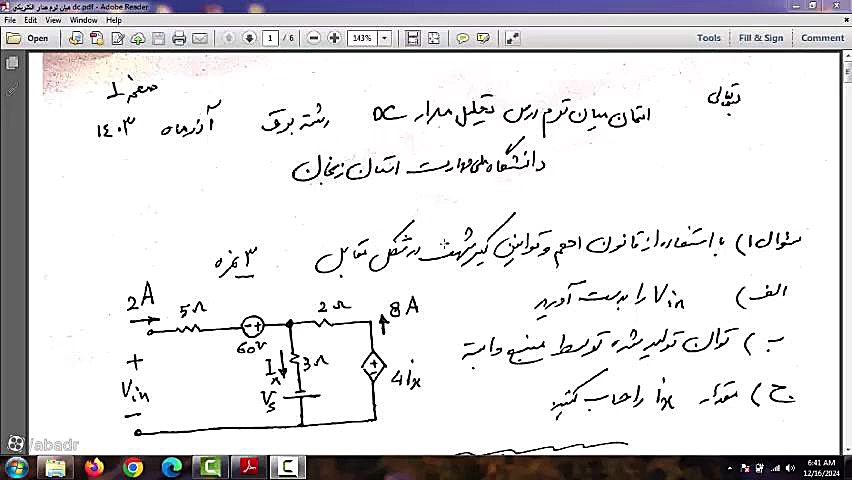 میان ترم مدار الکتریکی dc.pdf - Adobe Reader
File Edit View Window Help
Open 1 / 6 143% Tools Fill & Sign Comment
صفحه 1
بتعالی
امتحان میان ترم درس تحلیل مدار DC رشته برق آذرماه ۱۴۰۳
دانشگاه ملی مهارت استان زنجان
سوال ۱) با استفاده از قانون اهم و قوانین کیرشهف در شکل مقابل ۳ نمره
الف) Vin را بدست آورید
ب) توان تولید شده توسط منبع وابسته
ج) مقدار ix را حساب کنید
2A 5Ω 60V 2Ω 8A
+ Vin −
Ix 3Ω Vs
4ix
/abadr
6:41 AM
12/16/2024